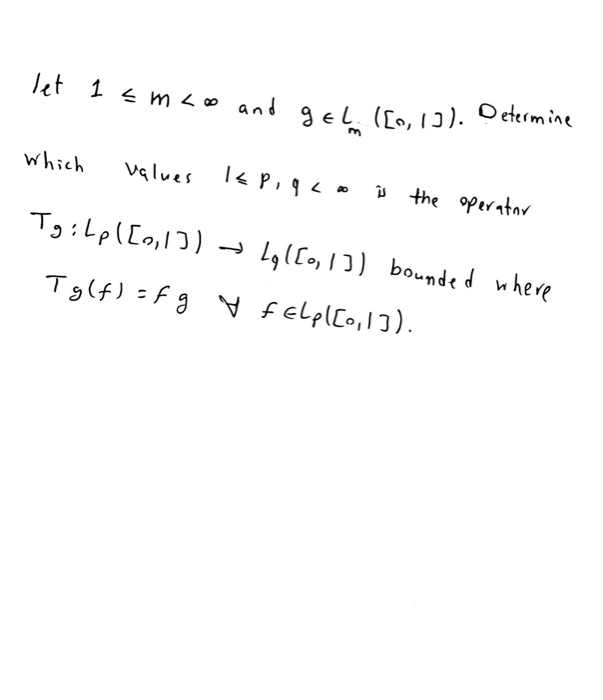 let 1 ≤ m < ∞ and g ∈ L_m ([0,1]). Determine
which values 1 ≤ p, q < ∞ is the operator
T_g : L_p([0,1]) → L_q([0,1]) bounded where
T_g(f) = f g ∀ f ∈ L_p([0,1]).